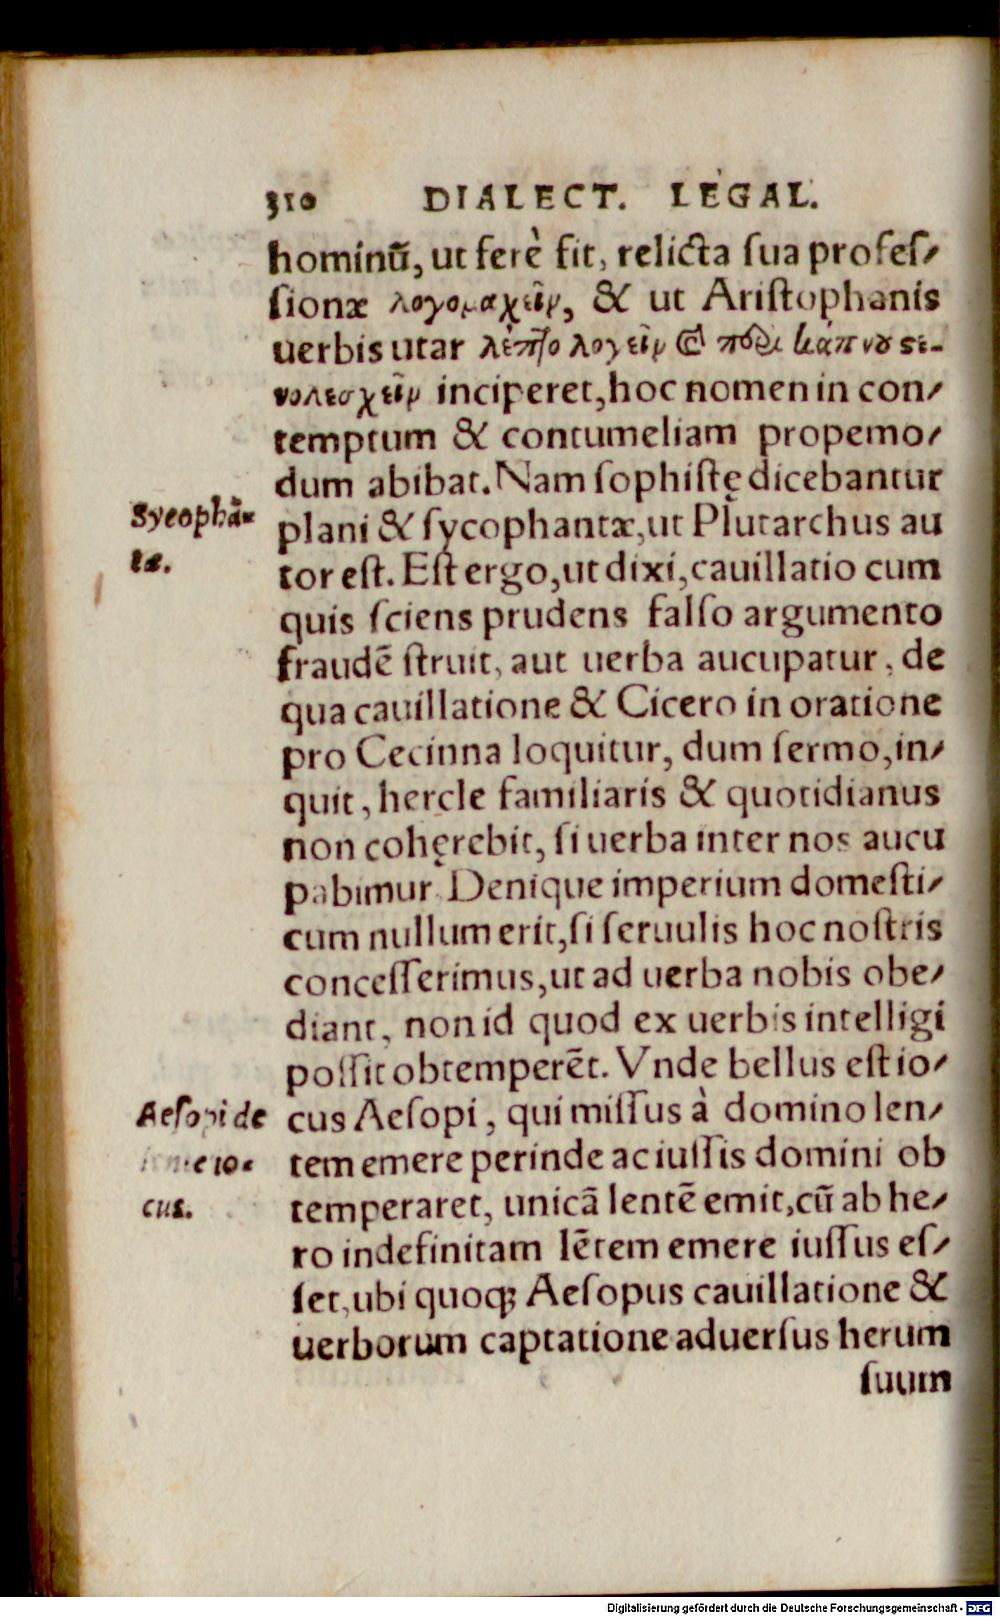 310 DIALECT. LEGAL.
hominū, ut ferè fit, relicta sua profes/
sionæ λογομαχεῖν, & ut Aristophanis
uerbis utar λεπτο λογεῖν & περὶ καπνοῦ ςε-
νολεσχεῖν inciperet, hoc nomen in con/
temptum & contumeliam propemo/
dum abibat. Nam sophistę dicebantur
Sycophā-
tæ.
plani & sycophantæ, ut Plutarchus au
tor est. Est ergo, ut dixi, cauillatio cum
quis sciens prudens falso argumento
fraudē struit, aut uerba aucupatur, de
qua cauillatione & Cicero in oratione
pro Cecinna loquitur, dum sermo, in/
quit, hercle familiaris & quotidianus
non cohęrebit, si uerba inter nos aucu
pabimur. Denique imperium domesti/
cum nullum erit, si seruulis hoc nostris
concesserimus, ut ad uerba nobis obe/
diant, non id quod ex uerbis intelligi
possit obtemperēt. Vnde bellus est io/
Aesopi de
io-
cus.
cus Aesopi, qui missus à domino len/
tem emere perinde ac iussis domini ob
temperaret, unicā lentē emit, cū ab he/
ro indefinitam lētem emere iussus es/
set, ubi quoq; Aesopus cauillatione &
uerborum captatione aduersus herum
suum
Digitalisierung gefördert durch die Deutsche Forschungsgemeinschaft - DFG